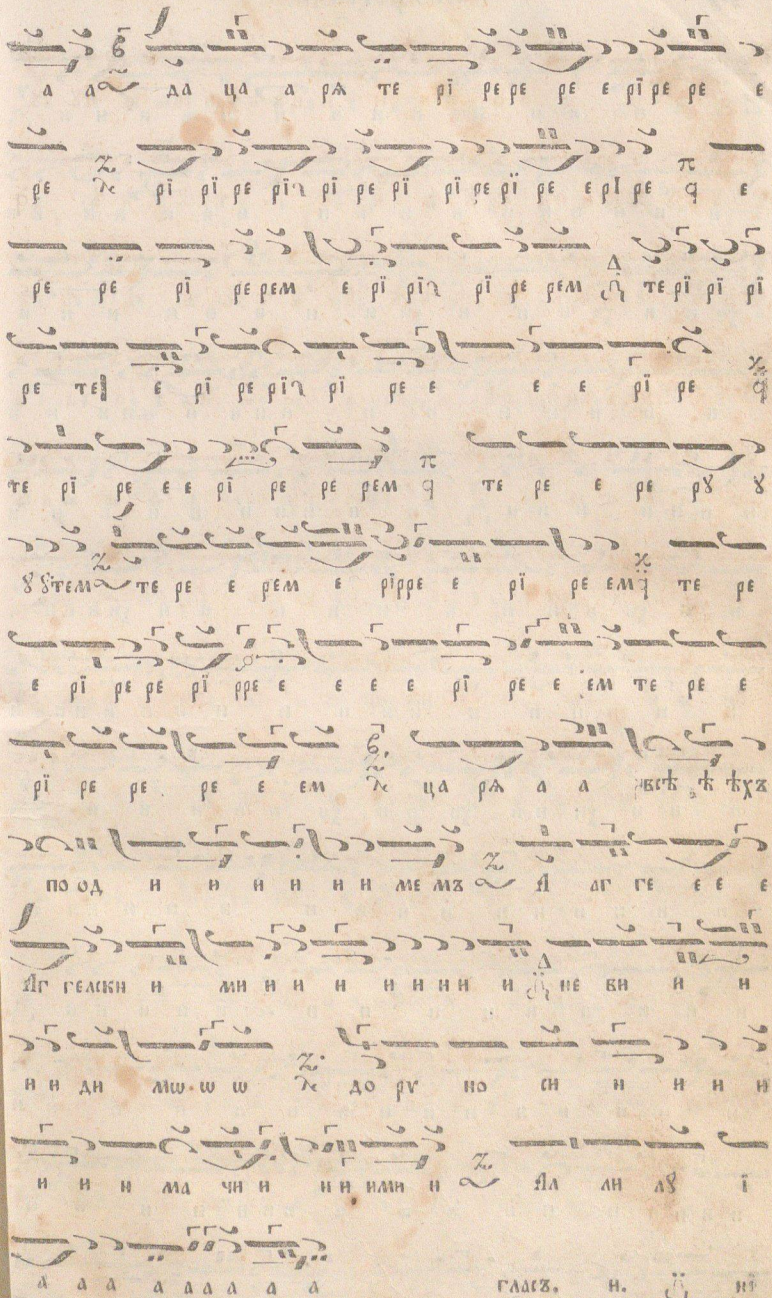 а а да ца а рѧ те рї ре ре ре е рї ре ре е
ре рї рї ре рї рї ре рї рї ре рї ре е рї ре е
ре ре рї ре рем е рї рї рї ре рем те рї рї рї
ре те е рї ре рї рї ре е е е рї ре
те рї ре е е рї ре ре рем те ре е ре рꙋ ꙋ
ꙋ ꙋтем те ре е рем е рїрре е рї ре ем те ре
е рї ре ре рї рре е е е е рї ре е ем те ре е
рї ре ре ре е ем ца рѧ а а всѣ ѣ ѣхъ
по од и и и и и и ме мъ А аг ге е е е
Аг гелски и ми и и и и и и и и не ви и и
и и ди мѡ ѡ ѡ до ру но си и и и
и и и ма чи и и и ими и Ал ли лꙋ ї
а а а а а а а а а гласъ. и. нї